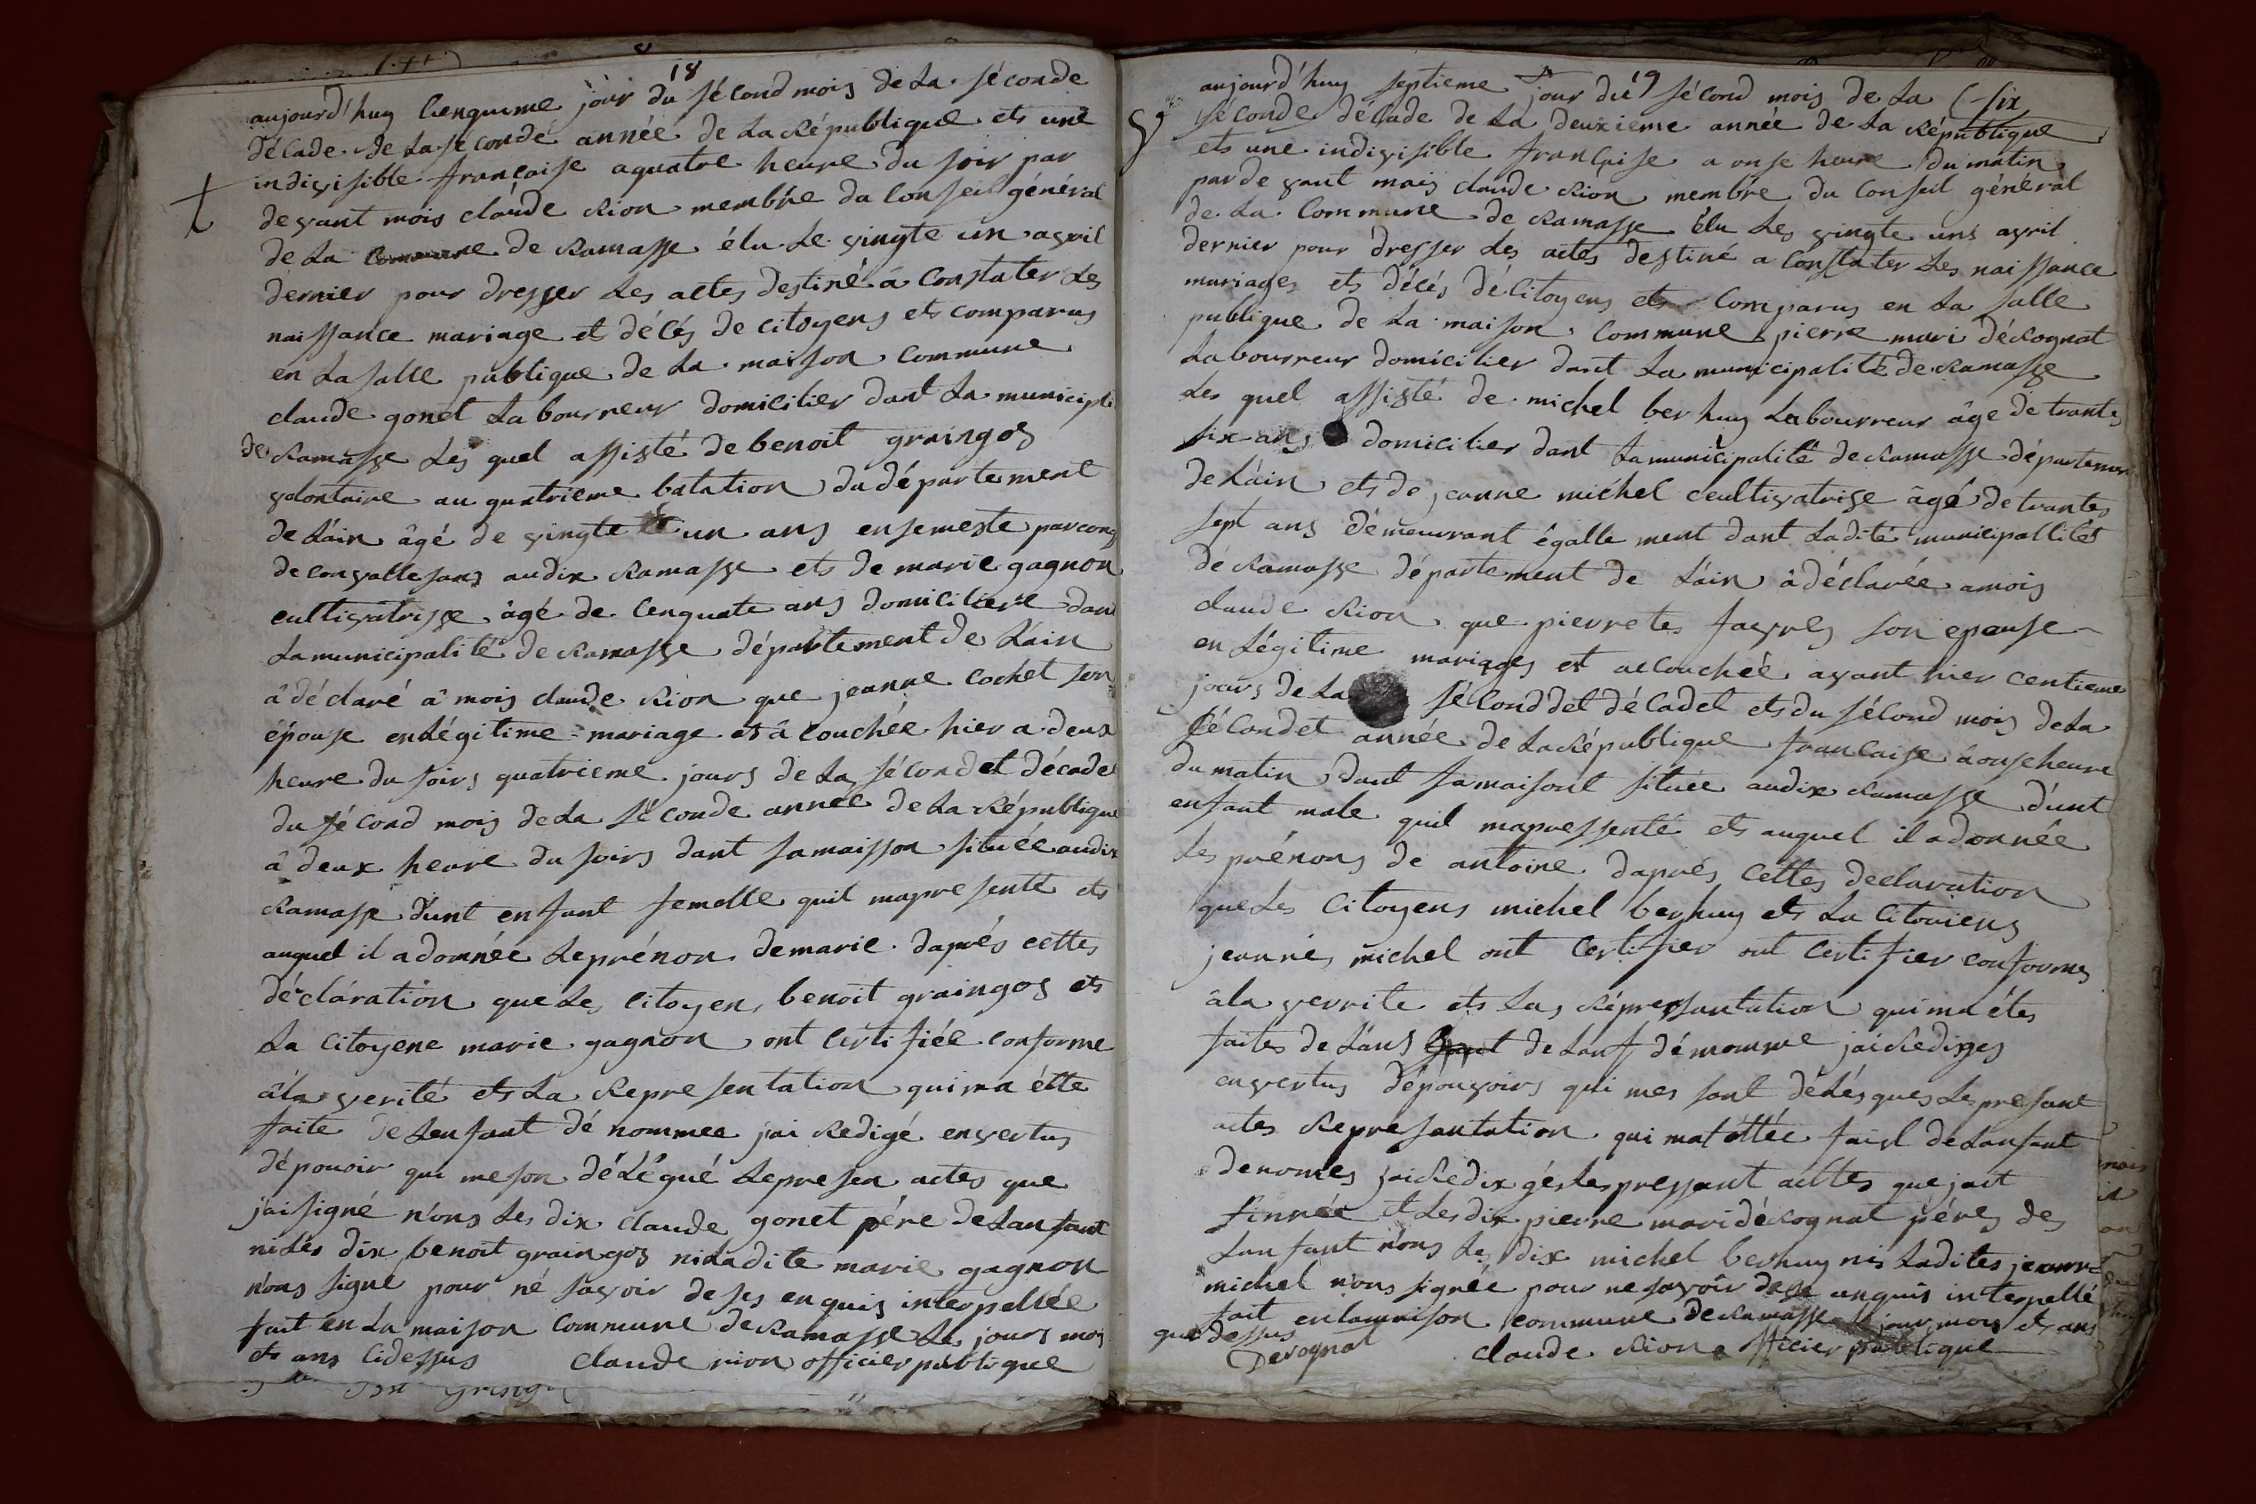 18
aujourd'huy Cenquieme jour du sécond mois de La séconde
décade de La séconde année de La République ets une
indivisible françaife aquatre heure du soir par
devant mois claude Rion membre du Conseil général
de La Commune de Ramasse élu Le vingte un avril
dernier pour dresser Les actes destiné â Constater Les
naissance mariage et décés de citoyens ets comparus
en La salle publique de La maison Commune
claude gonet Labourreur domicilier dant La municipli
de Ramasse Les quel assisté de benoit graingos
volontaire au quatrieme batation du département
de L'ain âgé de vingte un ans en semeste par cong
de convallesans audix Ramasse ets de marie gagnon
cultivatrisse âgé de Cenquate ans domiciliere dan
La municipalité de Ramasse département de L'ain
â déclaré â mois claude Rion que jeanne cochet son
épouse en Légitime mariage et â couchée hier a deux
heure du soirs quatrieme jours de La sécondet décade
du sécond mois de La séconde année de La République
â deux heure du soirs dant sa maisson située audix
Ramasse d'unt enfant femelle quil mapresenté ets
auquel il a donnée Le prénon de marie daprés cettes
déclaration que Les citoyen benoit graingos ets
La citoyene marie gagnon ont certifiée conforme
âla verité ets La Representation qui ma étte
faite de Lenfant dé nommee jai Redigé envertus
dé pouoir qui me son délégué Le presen actes que
jai signé n'ons Les dix claude gonet pére de Lanfant
ni Les dix benoit graingos ni Ladite marie gagnon
n'ons signé pour né savoir de ses enquis interpellée
fait en La maison Commune de Ramasse Les jours mois
ets ans Cidessus claude rion officier publique
19
aujourd'huy septieme jour du sécond mois de La
six
séconde décade de La deuxieme année de La République
ets une indivisible françaife a onse heure du matin
par de vant mais claude Rion membre du Conseil général
de La Commune de Ramasse élu Les vingte uns avril
dernier pour dresser Les actes destiné a constater Les naissance
mariages ets décés dé Citoyens ets Comparus en La salle
publique de La maison Commune pierre mari dérognat
Labourreur domicilier dant La municipalité de Ramasse
Les quel assisté de michel berhuy Labourreur âge de trantes
six ans domicilier dant La municipalité de Ramasse départemen
de L'ain ets de jeanne michel ceultivatrise âgé de trantes
sept ans démeurrant égalle ment dant Ladité municipallités
dé Ramasse département de L'ain â déclarée amois
claude Rion que pierretes favres son epouse
en Légitime mariages et accouchée avant hier centieme
jours de La séconddet décadet ets du sécond mois de La
sécondet année de La République francaise â onse heure
du matin dant sa maisont située audix Ramasse d'unt
enfant male quil mapressenté ets auquel il a donnée
Les prénons de antoine daprés cettes declaration
que Les Citoyens michel berhuy ets La Citoiens
jeanne michel ont Certifier ont Certifier conformes
âla verrite ets Las Répressantation qui ma étes
faites de L'ans de Lanf dénomme jai Rediges
en vertus dé pouvoirs qui mes sont délésgues Les presant
actes Representation qui mat éttée fait de Lanfant
denomés jai Redix gés Les pressant acttes que jait
sinnée et Les dix pierre mari dérognat péres des
Lanfant n'ons Les dix michel berhuy nis Ladites jeanne
michel n'ons signée pour ne savoir de ce anquis interpellé
fait en Lamaison commune de Ramasse jour mois ets ans
que dessus
Derognat claude Rion officier publique